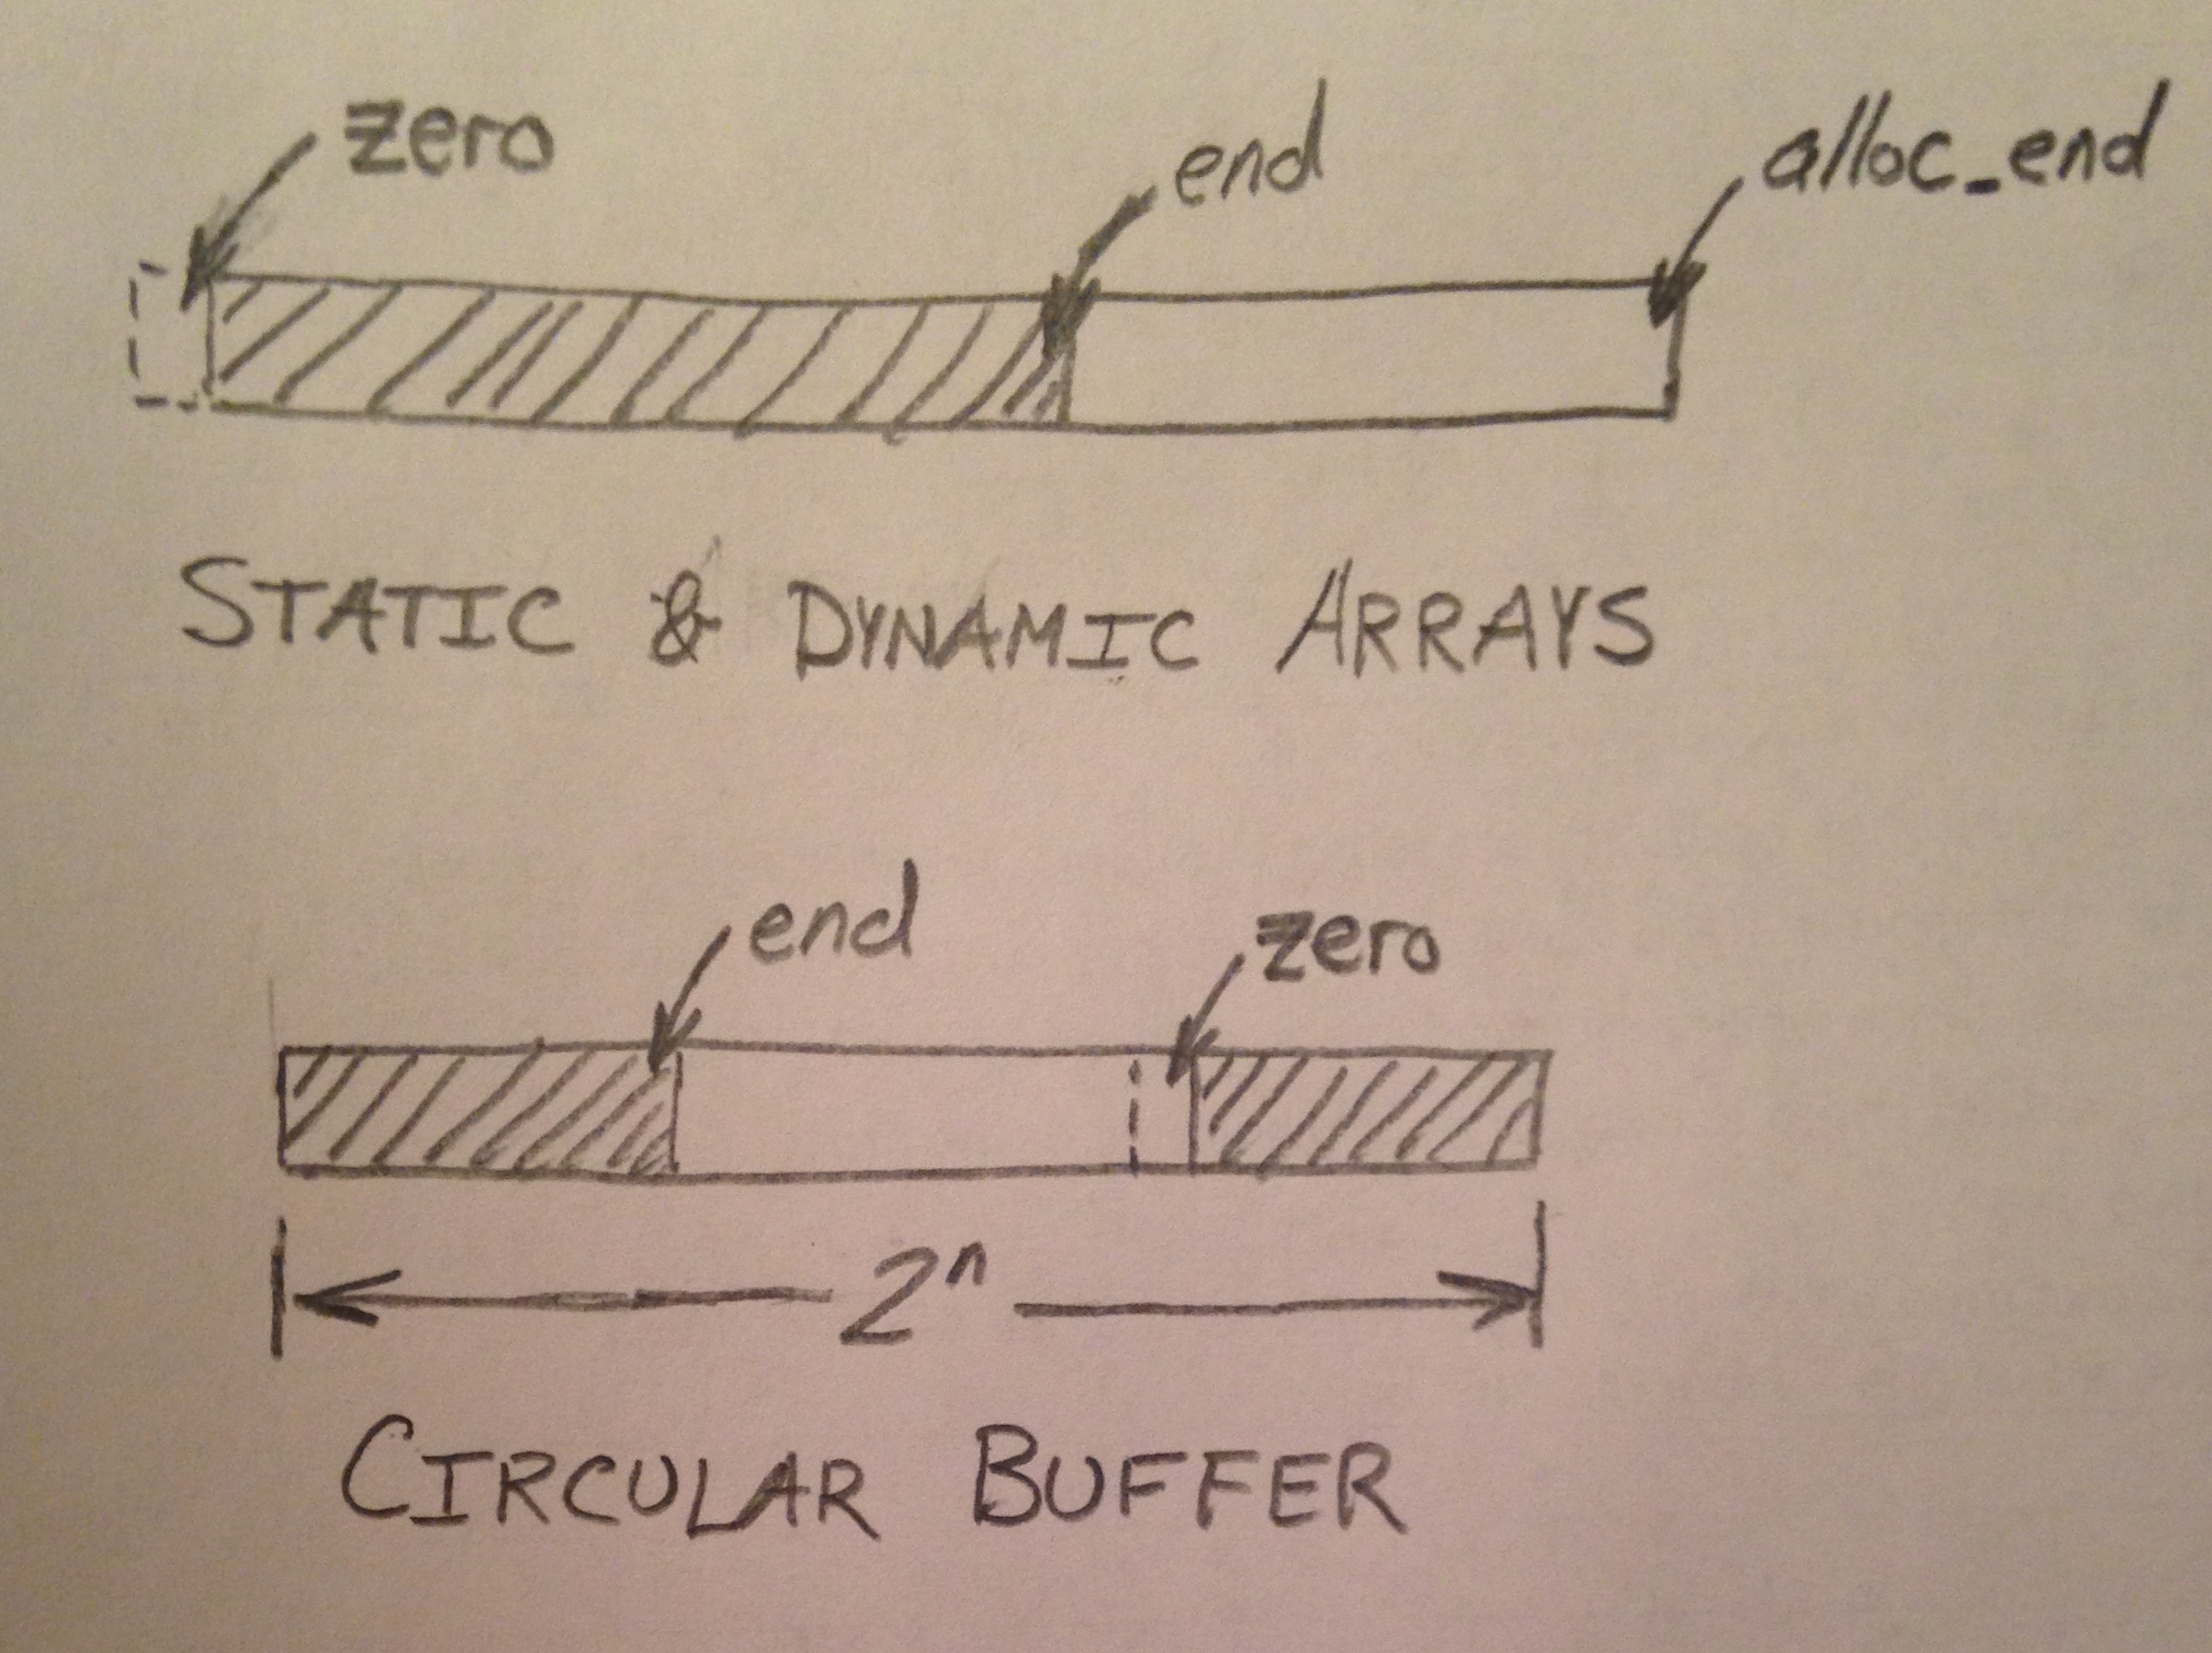 zero
end
alloc_end
STATIC & DYNAMIC ARRAYS
end
zero
2ⁿ
CIRCULAR BUFFER